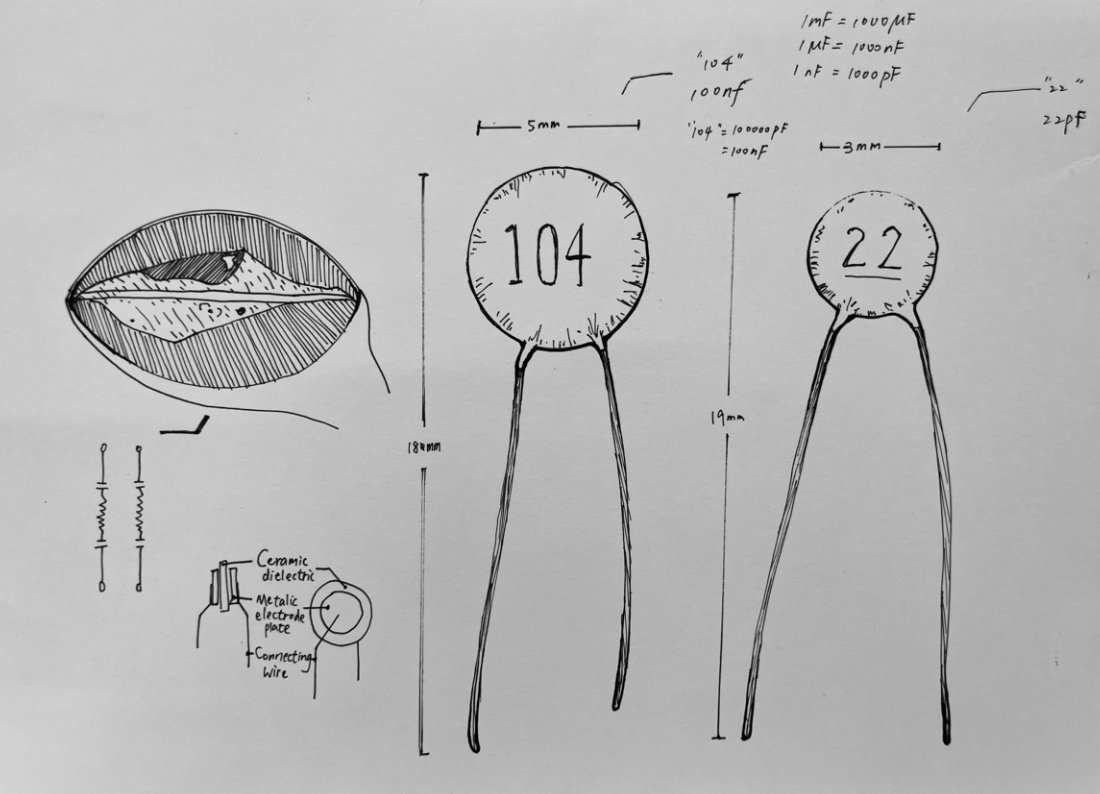 1mF = 1000μF
1μF = 1000nF
1nF = 1000pF
"104"
100nf
"104" = 100000pF
= 100nF
"22"
22pF
5mm
3mm
104
22
19mm
Ceramic
dielectric
Metalic
electrode
plate
Connecting
wire